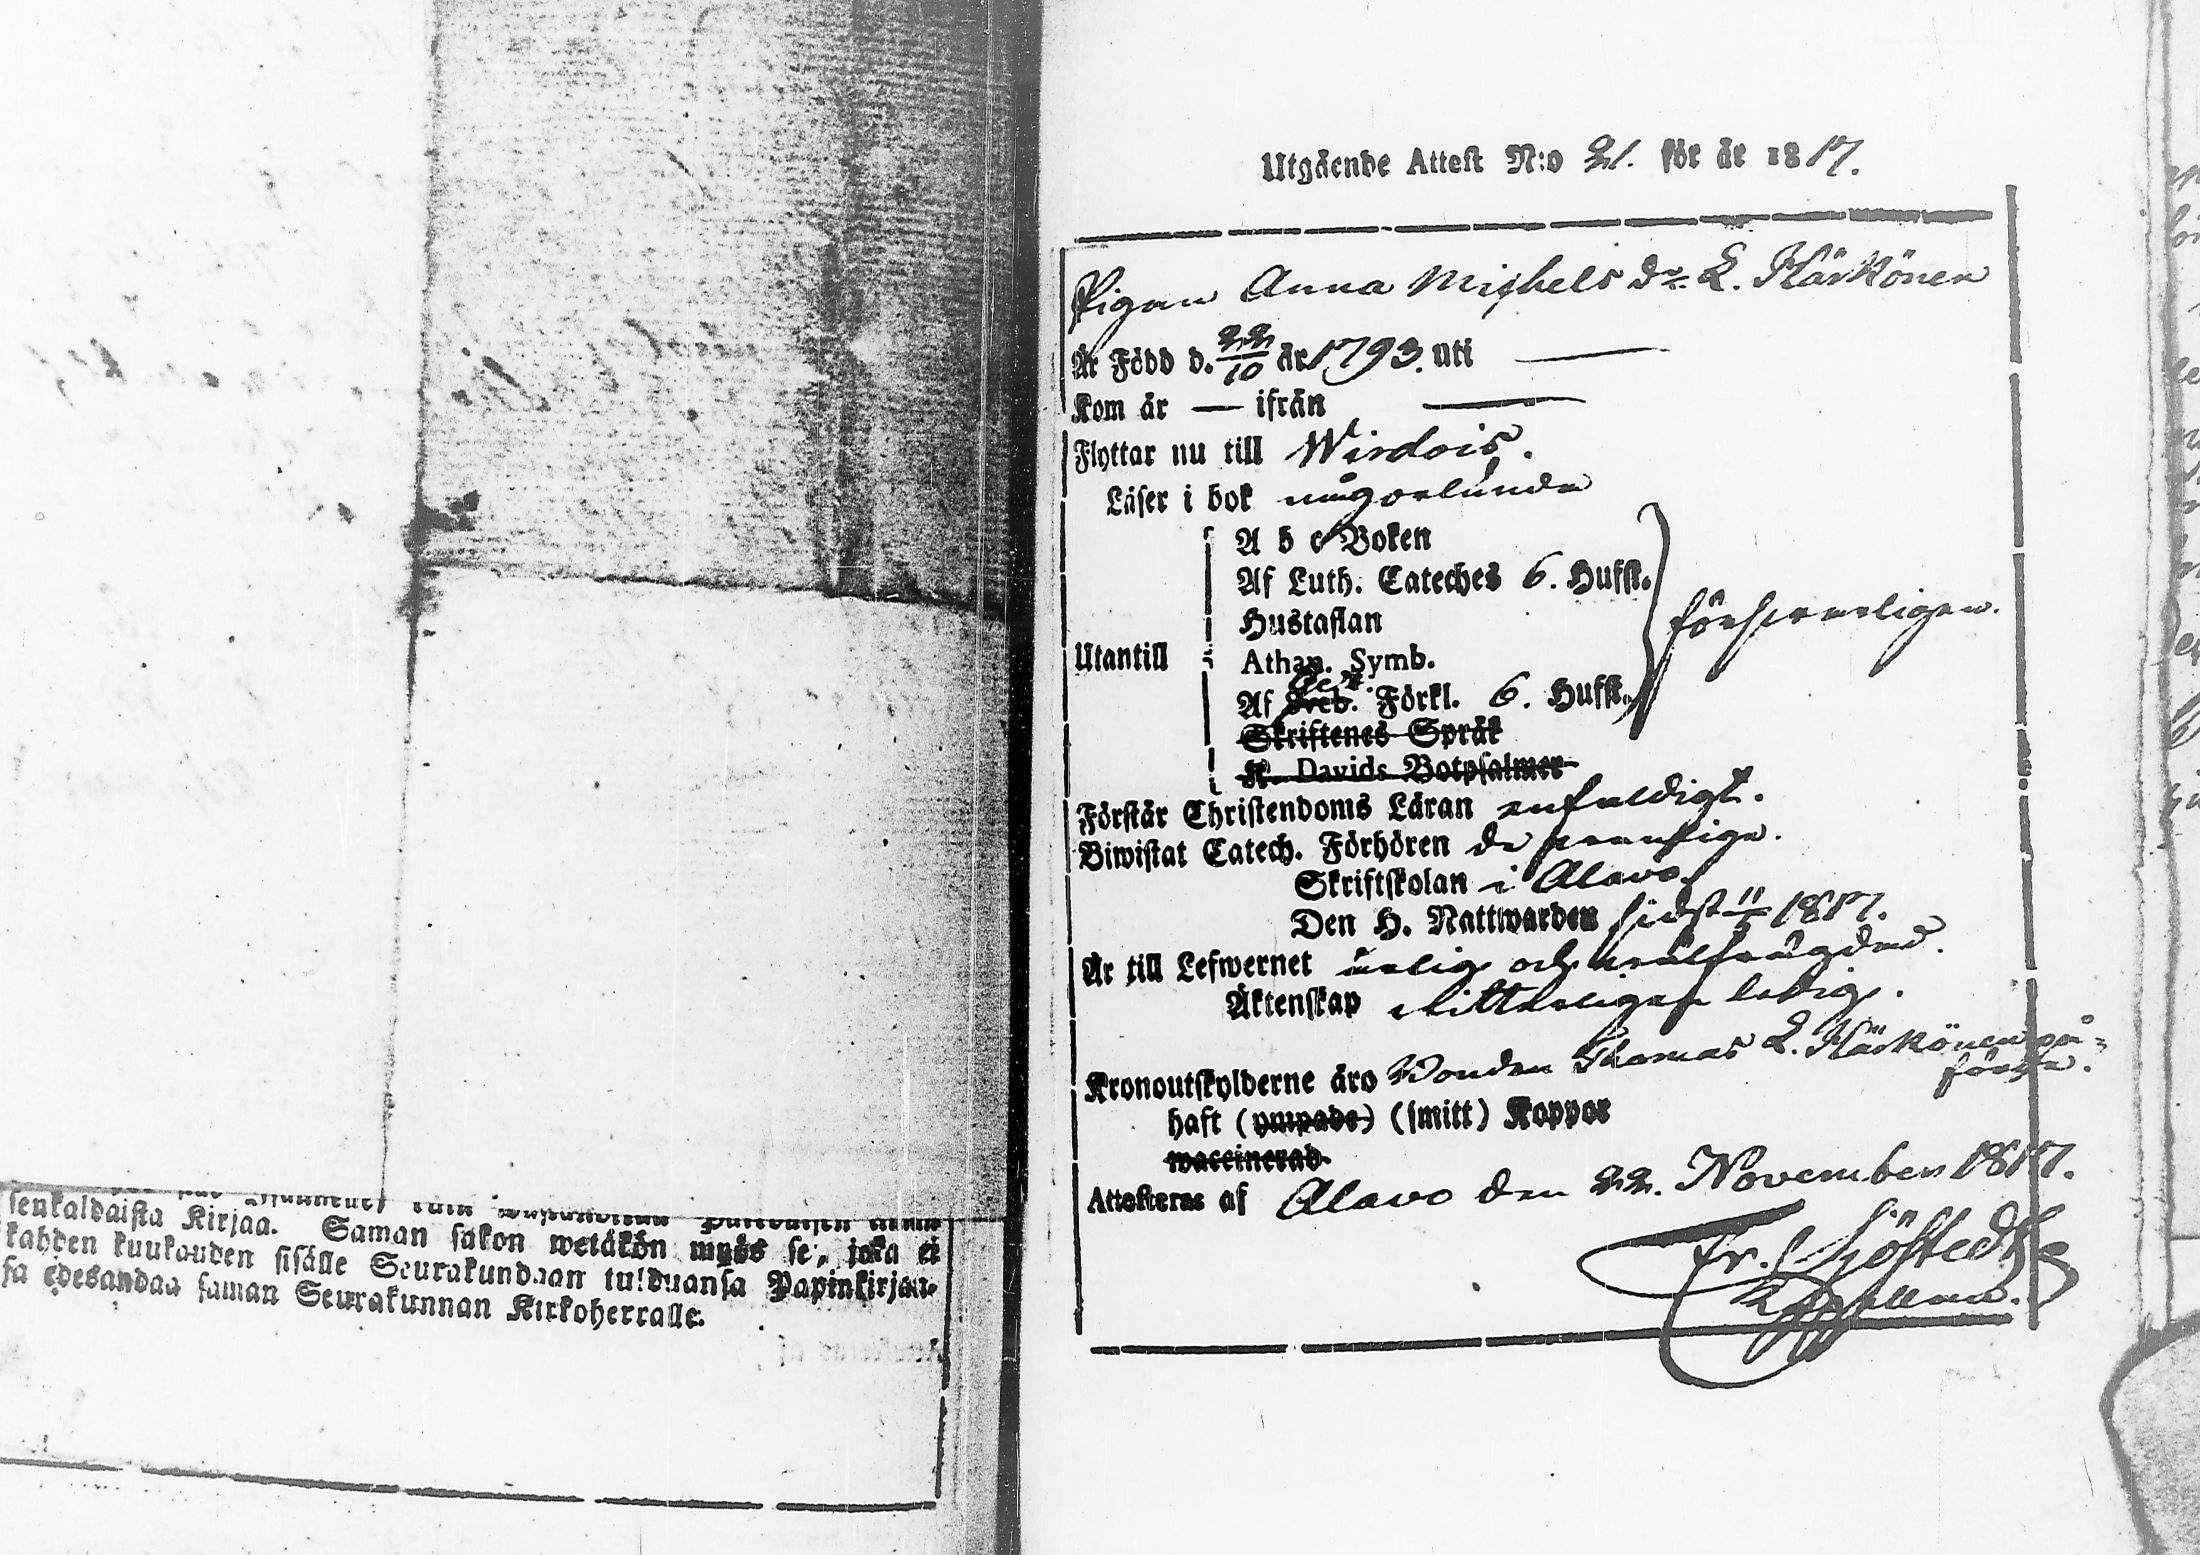 senkaldaista Kirjaa. Saman sakon wetäkön myös se, joka ei
kahden kuukauden sisälle Seurakundaan tulduansa Papinkirjaan-
sa edesandaa saman Seurakunnan Kirkoherralle.
Utgående Attest N:o 21. för år 1817.
Pigan Anna Michels dr. L. Härkönen
År Född d. 22/10 år 1793. uti —
Kom år — ifrån —
Flyttar nu till Wirdois.
Läser i bok någorlunda
A b c Boken
Af Luth. Cateches 6. Hufst.
Hustaflan
försvarligen.
Utantill
Athan. Symb.
Af Förkl. 6. Hufst.
Skriftenes Språk
K. Davids Botpsalmer
Förstår Christendoms Läran enfaldigt.
Biwistat Catech. Förhören de
Skriftskolan i Alavo
Den H. Nattwarden sidst 1817.
Är till Lefwernet ärlig och wälfrägdad.
Äktenskap ledig.
Kronoutskylderne äro Bonden Thomas L. Härkönen på-
förde.
haft (ympade) (smitt) Koppor
waccinerad
Attesteras af Alavo den 22. November 1817.
Fr. Sjöstedt
Capellan.